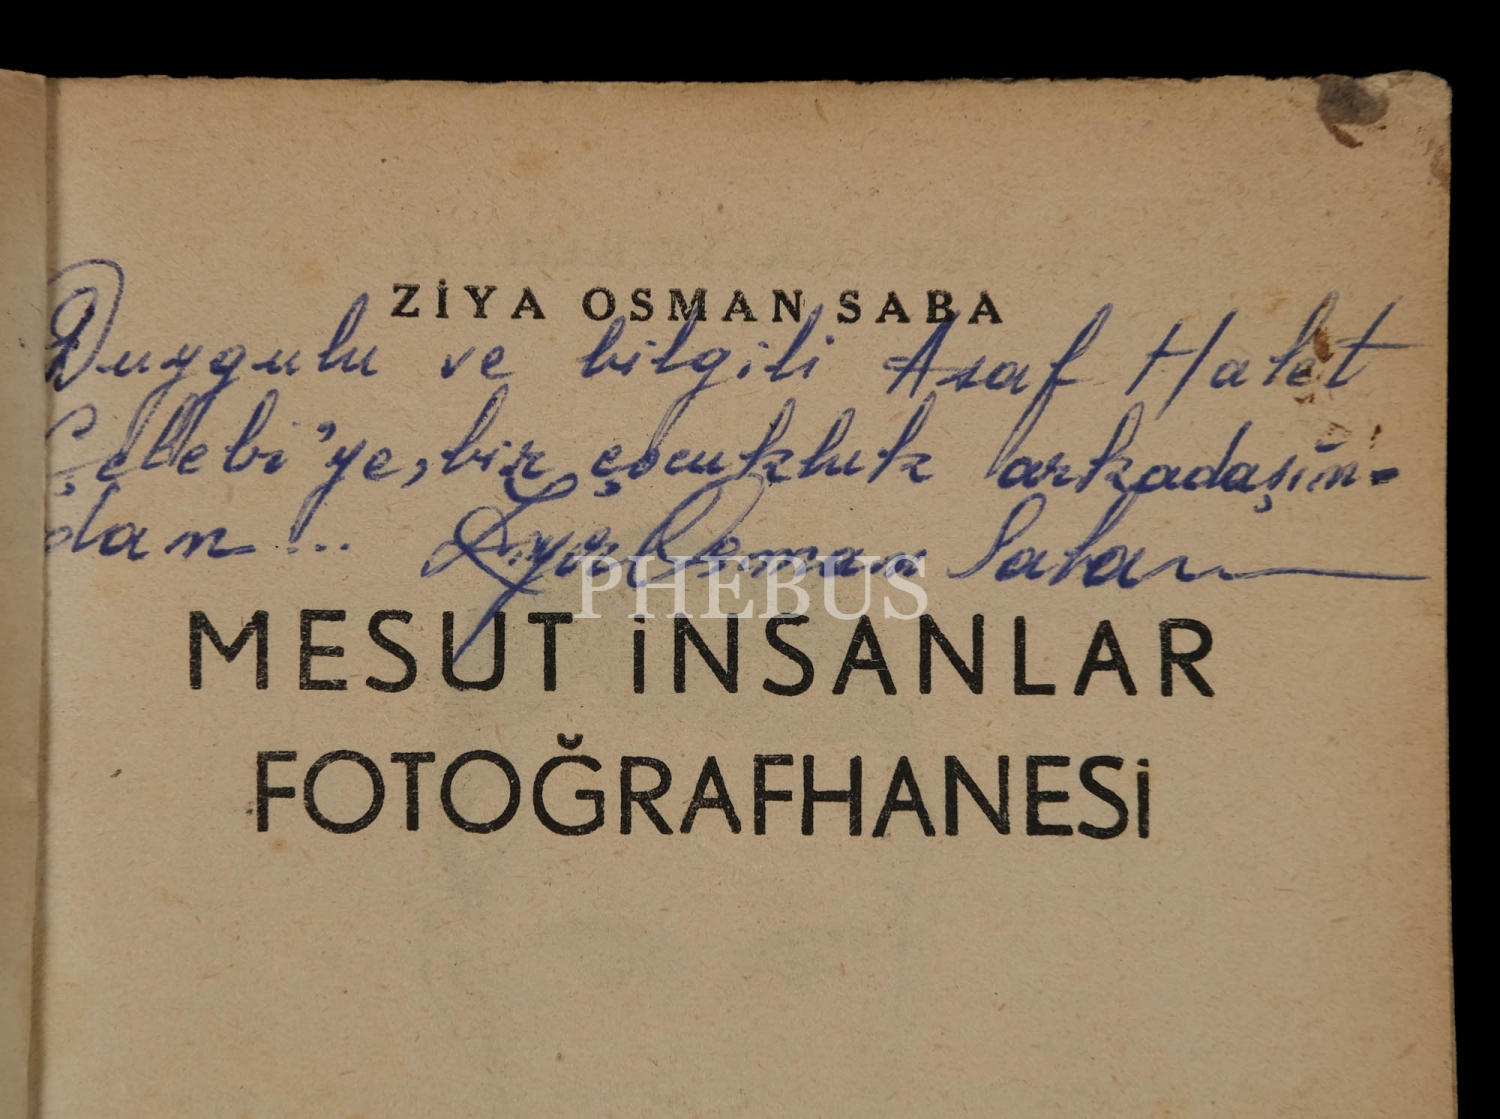 ZİYA OSMAN SABA
Duygulu ve bilgili Asaf Halet
Çelebi'ye, bir çocukluk arkadaşın-
dan... Ziya Osman Saba
PHEBUS
MESUT İNSANLAR
FOTOĞRAFHANESİ